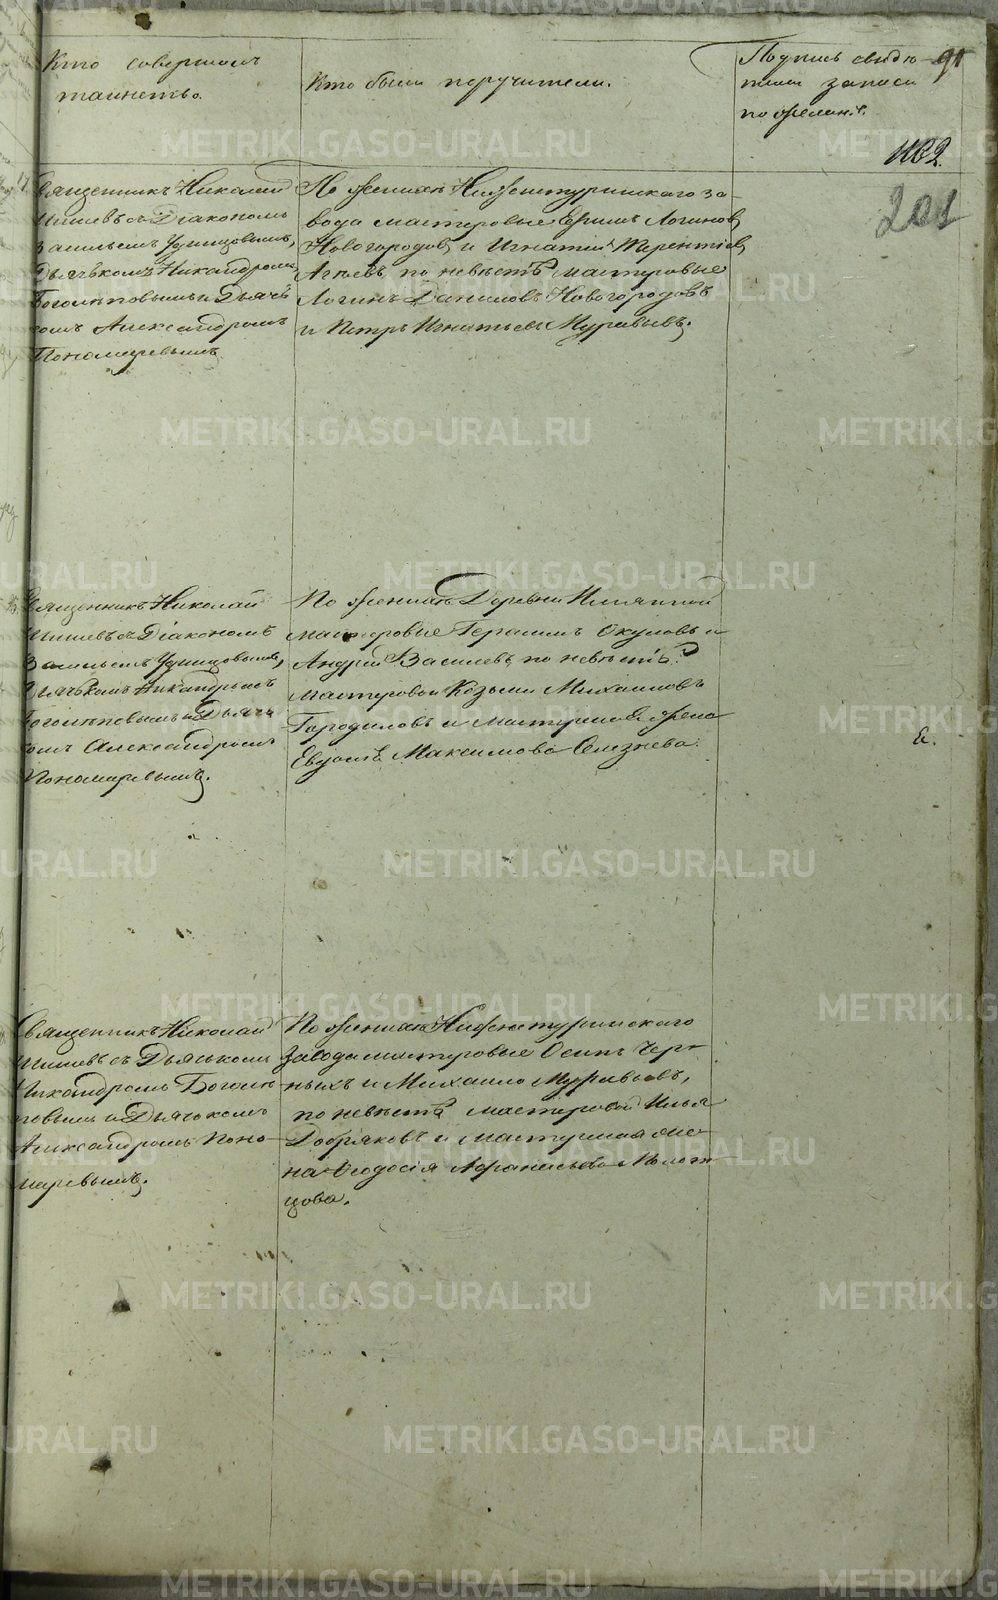 Кто совершалъ
таинство.
Кто были поручители.
Подпись свидѣ-
телей записи
по желанію.
91
1182.
201
Священникъ Николай
Шишевъ съ Діакономъ
Васильемъ Удинцовымъ,
Дьячькомъ Никандромъ
Боголѣповымъ и Дьячь
комъ Александромъ
Пономаревымъ.
По женихѣ Нижнетуринскаго за
вода мастеровые Ефимъ Логиновъ
Новогородовъ и Игнатій Терентіевъ
по невѣстѣ мастеровые
Логинъ Даниловъ Новогородовъ
и Петръ Игнатьевъ Муравьевъ.
Священникъ Николай
Шишевъ съ Діакономъ
Васильемъ Удинцовымъ,
Дьячькомъ Никандромъ
Боголѣповымъ и Дьячь
комъ Александромъ
Пономаревымъ.
По женихѣ Деревни Илькиной
мастеровые Герасимъ Окуловъ и
Андрей Василевъ по невѣстѣ
мастеровой Козьма Михаиловъ
Городиловъ и мастерская жена
Максимова Селезнева.
Священникъ Николай
Шишевъ съ Дьячькомъ
Никандромъ Боголѣ
повымъ и Дьячькомъ
Александромъ Поно-
маревымъ.
По женихѣ Нижнетуринскаго
завода мастеровые Осипъ Чер-
ныхъ и Михаило Муравьевъ,
по невѣстѣ мастеровой Илья
Добряковъ и мастерская же-
на Феодосія Афанасьева
цова.
METRIKI.GASO-URAL.RU